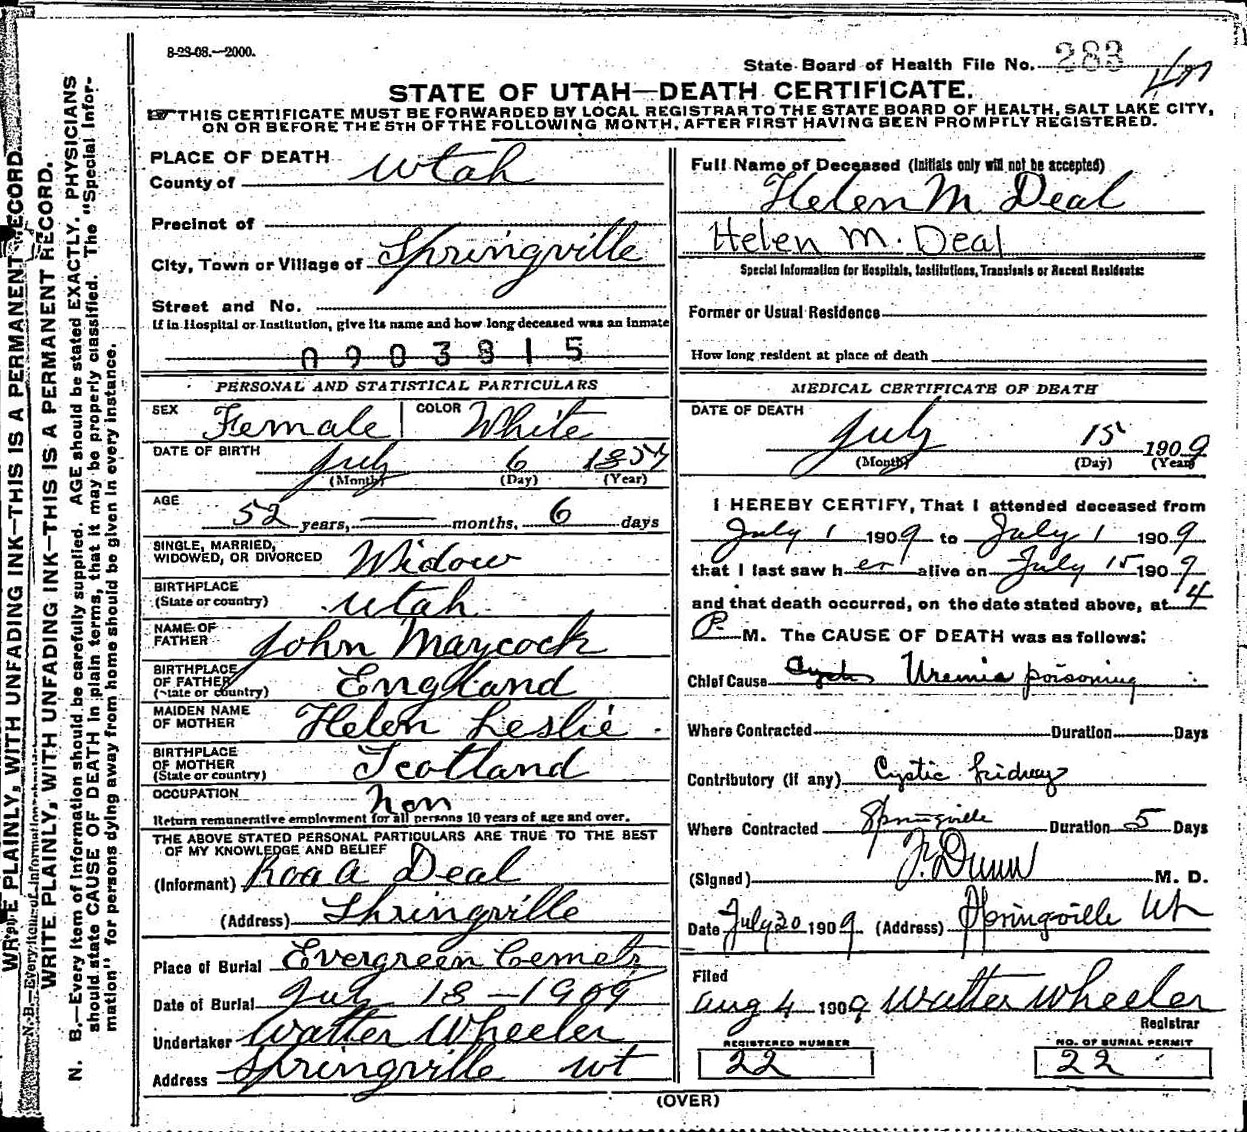 8-23-08.—2000.
State Board of Health File No. 283
STATE OF UTAH—DEATH CERTIFICATE.
THIS CERTIFICATE MUST BE FORWARDED BY LOCAL REGISTRAR TO THE STATE BOARD OF HEALTH, SALT LAKE CITY,
ON OR BEFORE THE 5TH OF THE FOLLOWING MONTH, AFTER FIRST HAVING BEEN PROMPTLY REGISTERED.
PLACE OF DEATH
County of Utah
Precinct of
City, Town or Village of Springville
Street and No.
If in Hospital or Institution, give its name and how long deceased was an inmate
0903815
PERSONAL AND STATISTICAL PARTICULARS
SEX Female COLOR White
DATE OF BIRTH July 6 1857
(Month) (Day) (Year)
AGE 52 years, — months, 6 days
SINGLE, MARRIED,
WIDOWED, OR DIVORCED Widow
BIRTHPLACE
(State or country) Utah
NAME OF
FATHER John Maycock
BIRTHPLACE
OF FATHER
(State or country) England
MAIDEN NAME
OF MOTHER Helen Leslie
BIRTHPLACE
OF MOTHER
(State or country) Scotland
OCCUPATION Non
Return remunerative employment for all persons 10 years of age and over.
THE ABOVE STATED PERSONAL PARTICULARS ARE TRUE TO THE BEST
OF MY KNOWLEDGE AND BELIEF
(Informant) Deal
(Address) Springville
Place of Burial Evergreen Cemetr
Date of Burial July 18 - 1909
Undertaker Walter Wheeler
Address Springville ut
Full Name of Deceased (Initials only will not be accepted)
Helen M Deal
Helen M. Deal
Special Information for Hospitals, Institutions, Transients or Recent Residents:
Former or Usual Residence
How long resident at place of death
MEDICAL CERTIFICATE OF DEATH
DATE OF DEATH
July 15 1909
(Month) (Day) (Year)
I HEREBY CERTIFY, That I attended deceased from
July 1 1909 to July 1 1909
that I last saw her alive on July 15 1909
and that death occurred, on the date stated above, at 4
P. M. The CAUSE OF DEATH was as follows:
Chief Cause Uremia poisoning
Where Contracted Duration Days
Contributory (if any) Cystic kidney
Where Contracted Springville Duration 5 Days
(Signed) F. Dunn M. D.
Date July 20 1909 (Address) Springville Ut
Filed
Aug 4 1909 Walter Wheeler
Registrar
REGISTERED NUMBER
22
NO. OF BURIAL PERMIT
22
(OVER)
WRITE PLAINLY, WITH UNFADING INK—THIS IS A PERMANENT RECORD.
N. B.—Every item of Information
WRITE PLAINLY, WITH UNFADING INK—THIS IS A PERMANENT RECORD.
N. B.—Every item of information should be carefully supplied. AGE should be stated EXACTLY. PHYSICIANS
should state CAUSE OF DEATH in plain terms, that it may be properly classified. The "Special Infor-
mation" for persons dying away from home should be given in every instance.